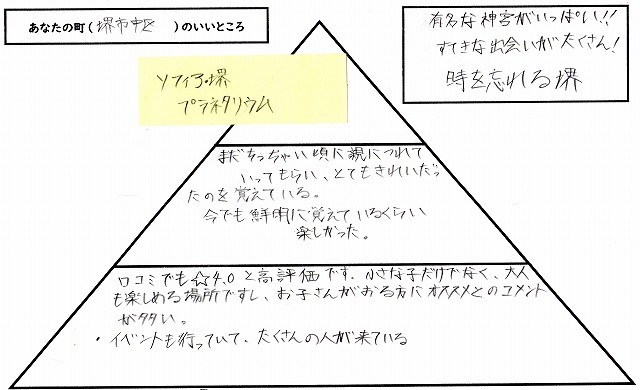 あなたの町(堺市中区)のいいところ
有名な神宮がいっぱい!!
すてきな出会いがたくさん!
時を忘れる堺
ソフィア・堺
プラネタリウム
まだちっちゃい頃に親につれて
いってもらい、とてもきれいだっ
たのを覚えている。
今でも鮮明に覚えているくらい
楽しかった。
口コミでも☆4.0と高評価です。小さな子だけでなく、大人
も楽しめる場所ですし、お子さんがおる方にオススメとのコメント
が多い。
・イベントも行っていて、たくさんの人が来ている